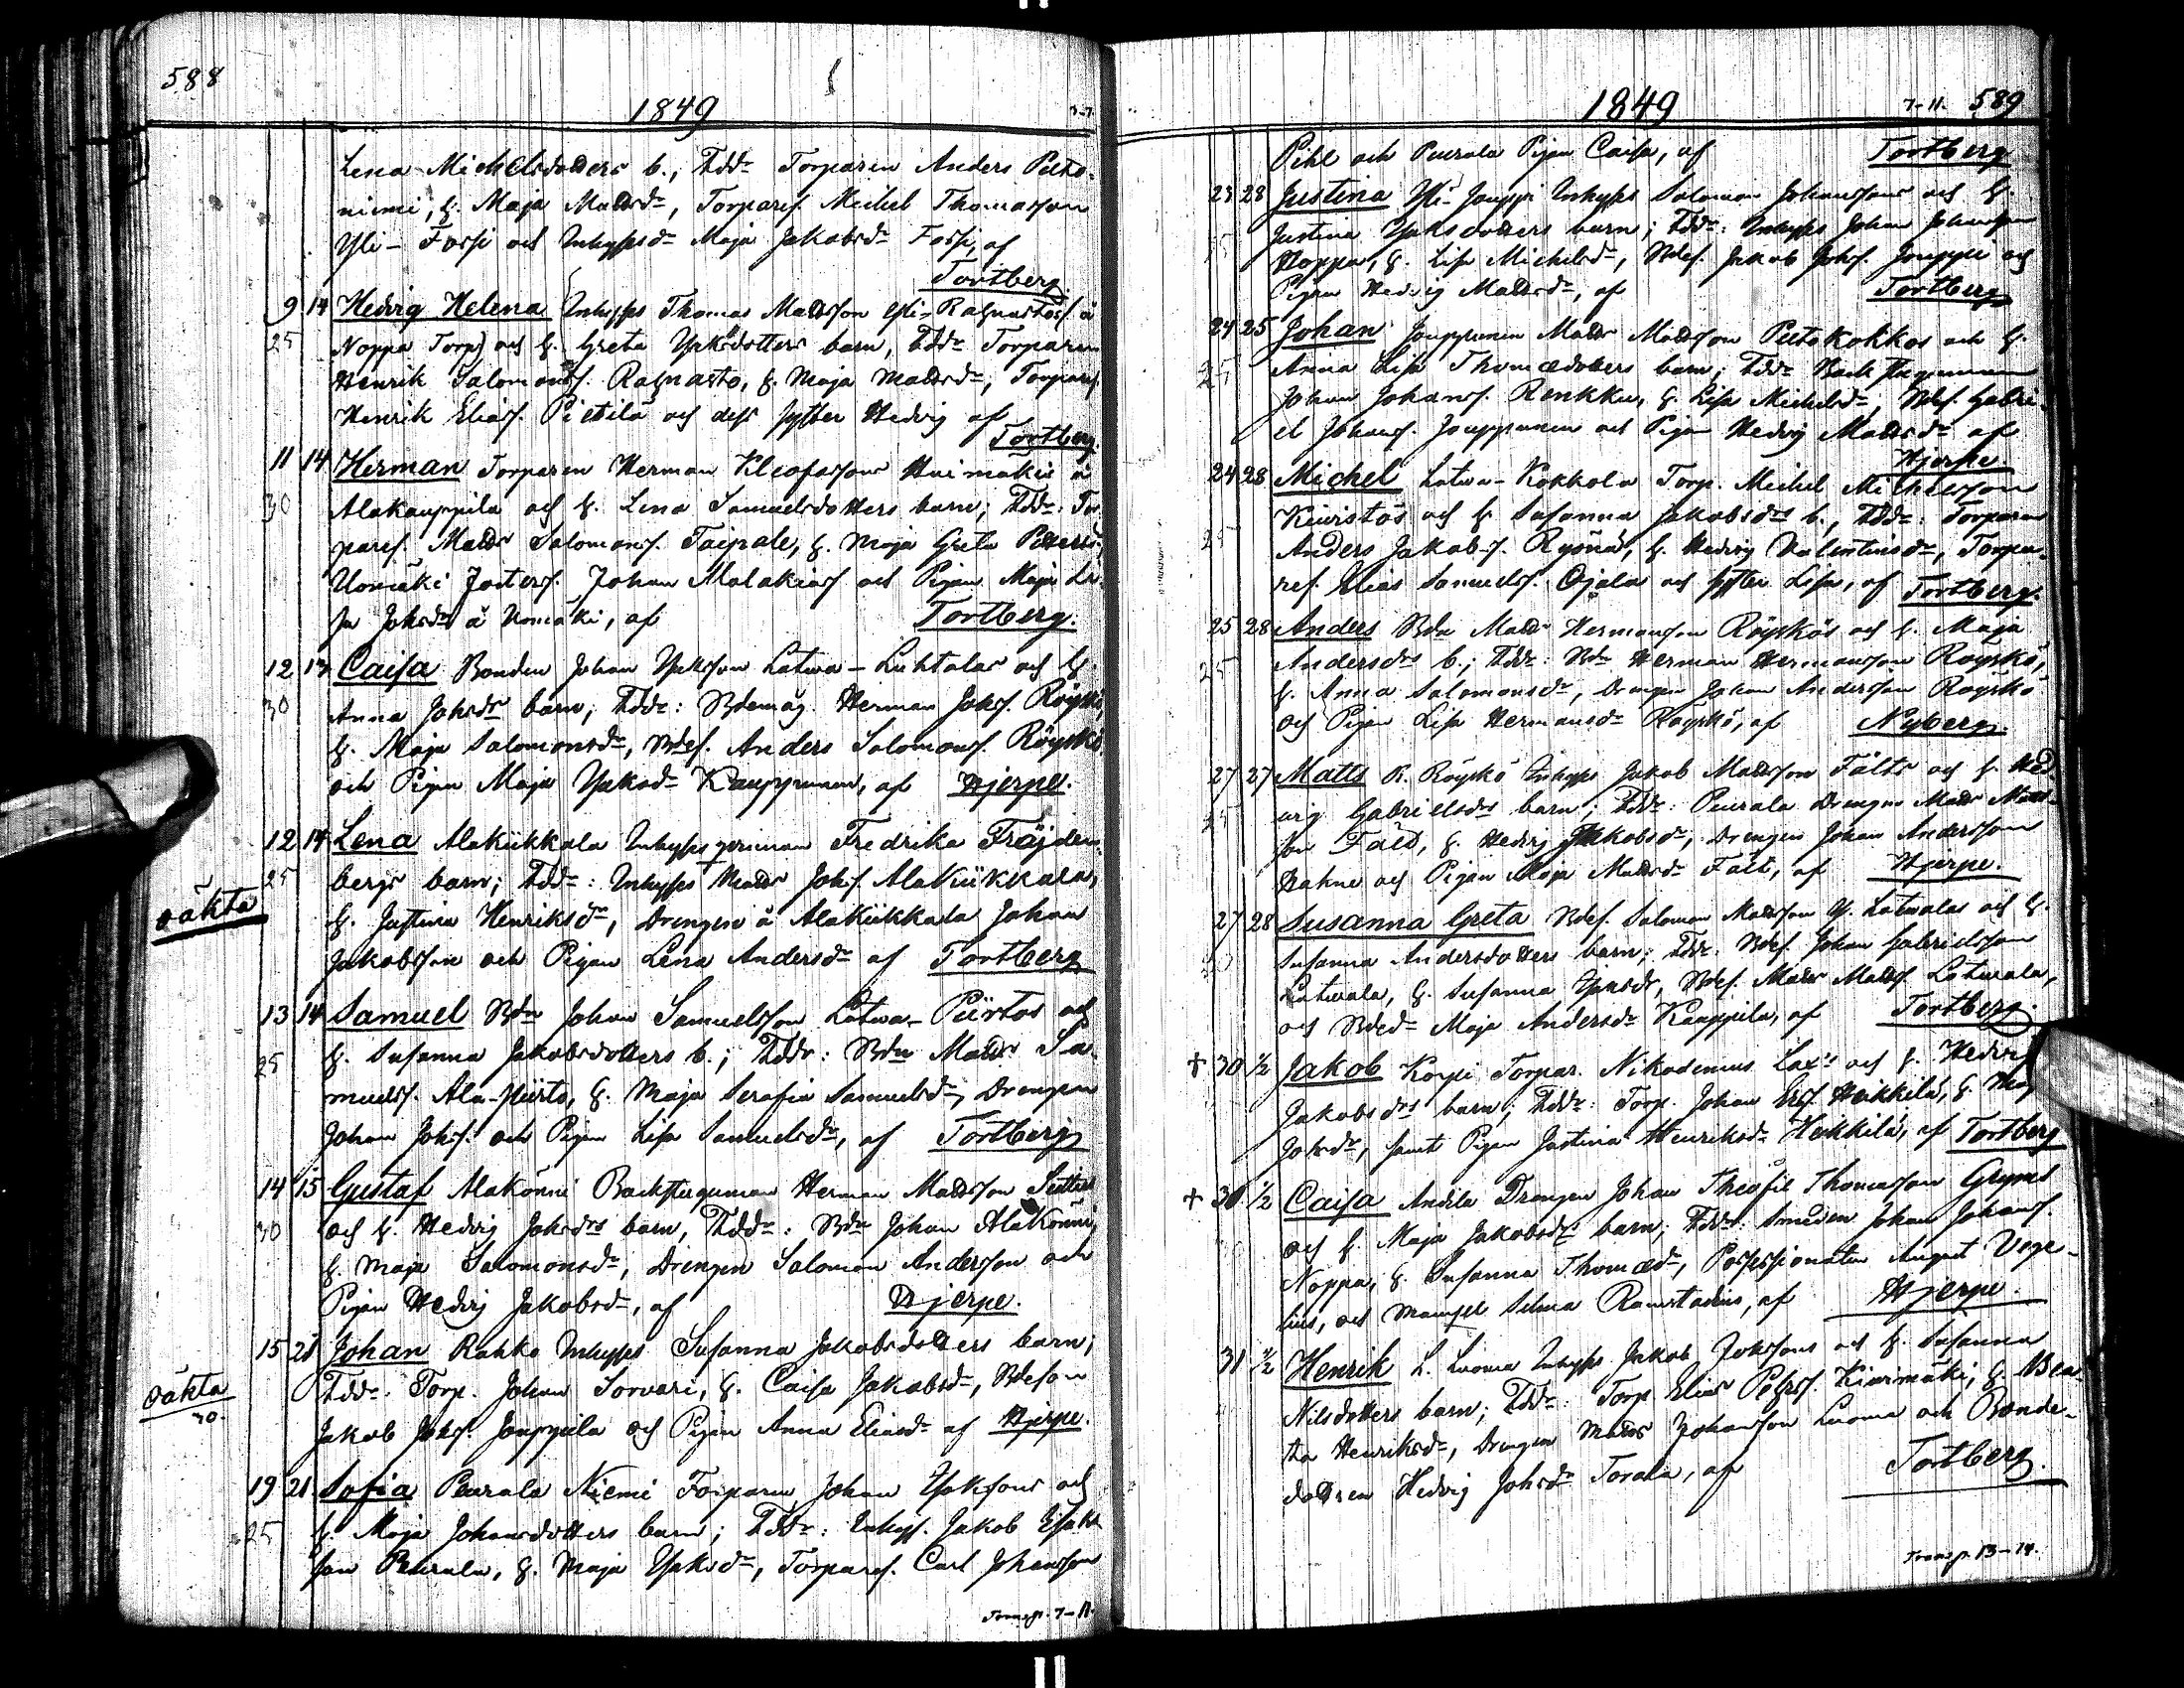 588
1849
7-7
Lena Michelsdotters b.; Fddr Torparen Anders Peeto-
niemi, h. Maja Mattsdr, Torpares. Michel Thomasson
Yli-Fossi och Inhyses dr Maja Jakobsdr Fossi, af
Tortberg.
9 14 Hedvig Helena Inhyses Thomas Mattsson Yli-Rahnastos à
25 Noppa Torp) och h. Greta Isaksdotters barn, Fddr Torparen
Henrik Salomons. Rahnasto, h. Maja Mattsdr, Torpares.
Henrik Elias. Pietilä och dess syster Hedvig af
Tortberg.
11 14 Herman Torparen Herman Kleofassons Huimäkis à
30 Alakauppila och h. Lena Samuelsdotters barn; Fddr: Tor-
pares. Matts Salomons. Taipale, h. Maja Greta Pettersdr
Uomäki Jöster. Johan Malakias. och Pigan Maja Li-
sa Johsdr à Uomäki, af Tortberg.
12 13 Caisa Bonden Johan Isaksson Latva-Luhtalas och h.
30 Anna Johsdrs barn; Fddr: Bdemåg. Herman Johs. Röyskö,
h. Maja Salomonsdr, Bdes. Anders Salomons. Röyskö
och Pigan Maja Isaksdr Kauppinen, af Hjerpe.
12 14 Lena Alakiikkala Inhysespiman Fredrika Fräjden-
25 bergs barn; Fddr: Inhyses Matts Johs. Alakiikkala,
oäkta
h. Justina Henriksdr, Drengen à Alakiikkala Johan
Jakobsson och Pigan Lena Andersdr af Tortberg
13 14 Samuel Bdn Johan Samuelsson Latva-Piirtos och
25 h. Susanna Jakobsdotters b.; Fddr: Bdn Matts Sa-
muels. Ala-Piirto, h. Maja Serafia Samuelsdr, Drengen
Johan Johs. och Pigan Lisa Samuelsdr, af Tortberg
14 15 Gustaf Alakönni Backstuguman Herman Mattsson
30 och h. Hedvig Johsdrs barn, Fddr: Bdn Johan Alakönni,
h. Maja Salomonsdr, Drengen Salomon Andersson och
Pigan Hedvig Jakobsdr, af Hjerpe.
15 21 Johan Rahko Inhyses Susanna Jakobsdotters barn;
oäkta
30. Fddr. Torp. Johan Sorvari, h. Caisa Jakobsdr, Bdeson
Jakob Johs. Jouppila och Pigan Anna Eliasdr af Hjerpe.
19 21. Sofia Peurala Niemi Torparen Johan Isakssons och
25 h. Maja Johansdotters barn; Fddr: Inhys. Jakob Isaks-
son Peurala, h. Maja Isaksdr, Torpares. Carl Johansson
Transp. 7-11.
1849
7-11. 589
Pihl och Peurala Pigan Caisa, af Tortberg
23 28 Justina Yli-Jouppi Inhyses Salomon Johanssons och h.
Justina Isaksdotters barn; Fddr: Inhyses Johan Johansson
Hoppa, h. Lisa Michelsdr, Bdes. Jakob Johs. Jouppi och
Pigan Hedvig Mattsdr, af Tortberg
24 25 Johan Jouppinen Matts Mattsson Peetokokkos och h.
25 Anna Lisa Thomædotters barn; Fddr Backstuguman
Johan Johans. Renkku, h. Lisa Michelsdr, Bdes. Gabri-
el Johans. Jouppinen och Pigan Hedvig Mattsdr af
Hjerpe.
24 28 Michel Latva-Kokkola Torp. Michel Michelsson
Kiviistös och h. Susanna Jakobsdrs b., Fddr: Torparen
25 Anders Jakobs. Rysnä, h. Hedvig Valentinsdr, Torpa-
res. Elias Samuels. Ojala och syster Lisa, af Tortberg.
25 28 Anders Bdn Matts Hermansson Röyskös och h. Maja
25 Andersdrs b.; Fddr: Bdn Herman Hermansson Röyskö,
h. Anna Salomonsdr, Drengen Johan Andersson Röyskö
och Pigan Lisa Hermansdr Röyskö, af Nyberg.
27 27 Matts R. Röyskö Inhyses Jakob Mattsson Fälts och h. Hed-
25 vig Gabrielsdrs barn; Fddr: Peurala Drengen Matts Matts-
son Fält, h. Hedvig Jakobsdr, Drengen Johan Andersson
Hahne och Pigan Maja Mattsdr Fält, af Hjerpe.
27 28 Susanna Greta Bdes. Salomon Mattsson Y. Latvalas och h.
Susanna Andersdotters barn; Fddr. Bdes. Johan Gabrielsson
Latvala, h. Susanna Isaksdr, Bdes. Matts Matts. Latvala,
och Bdedr Maja Andersdr Kauppila, af Tortberg.
+ 30 1/2 Jakob Korpi Torpar. Nikodemus Lax's och h. Hedvig
Jakobsdrs barn; Fddr: Torp. Johan Ers. Heikkilä, h. Maj
Johsdr, samt Pigan Justina Henriksdr Heikkilä, af Tortberg
+ 30. 1/2 Caisa Andila Drengen Johan Theofil Thomasson Gryms
och h. Maja Jakobsdrs barn; Fddr: Smeden Johan Johans.
Noppa, h. Susanna Thomædr, Possessionaten August Vege-
lius, och Mamsell Selma Ramstadius, af Hjerpe.
31 1/2 Henrik L. Luoma Inhyses Jakob Johssons och h. Susanna
Nilsdotters barn; Fddr: Torp Elias Pehrss. Kivimäki, h. Bea-
ta Henriksdr, Drengen Matts Johansson Luoma och Bonde-
dottren Hedvig Johsdr Torala, af Tortberg.
Transp. 13-14.